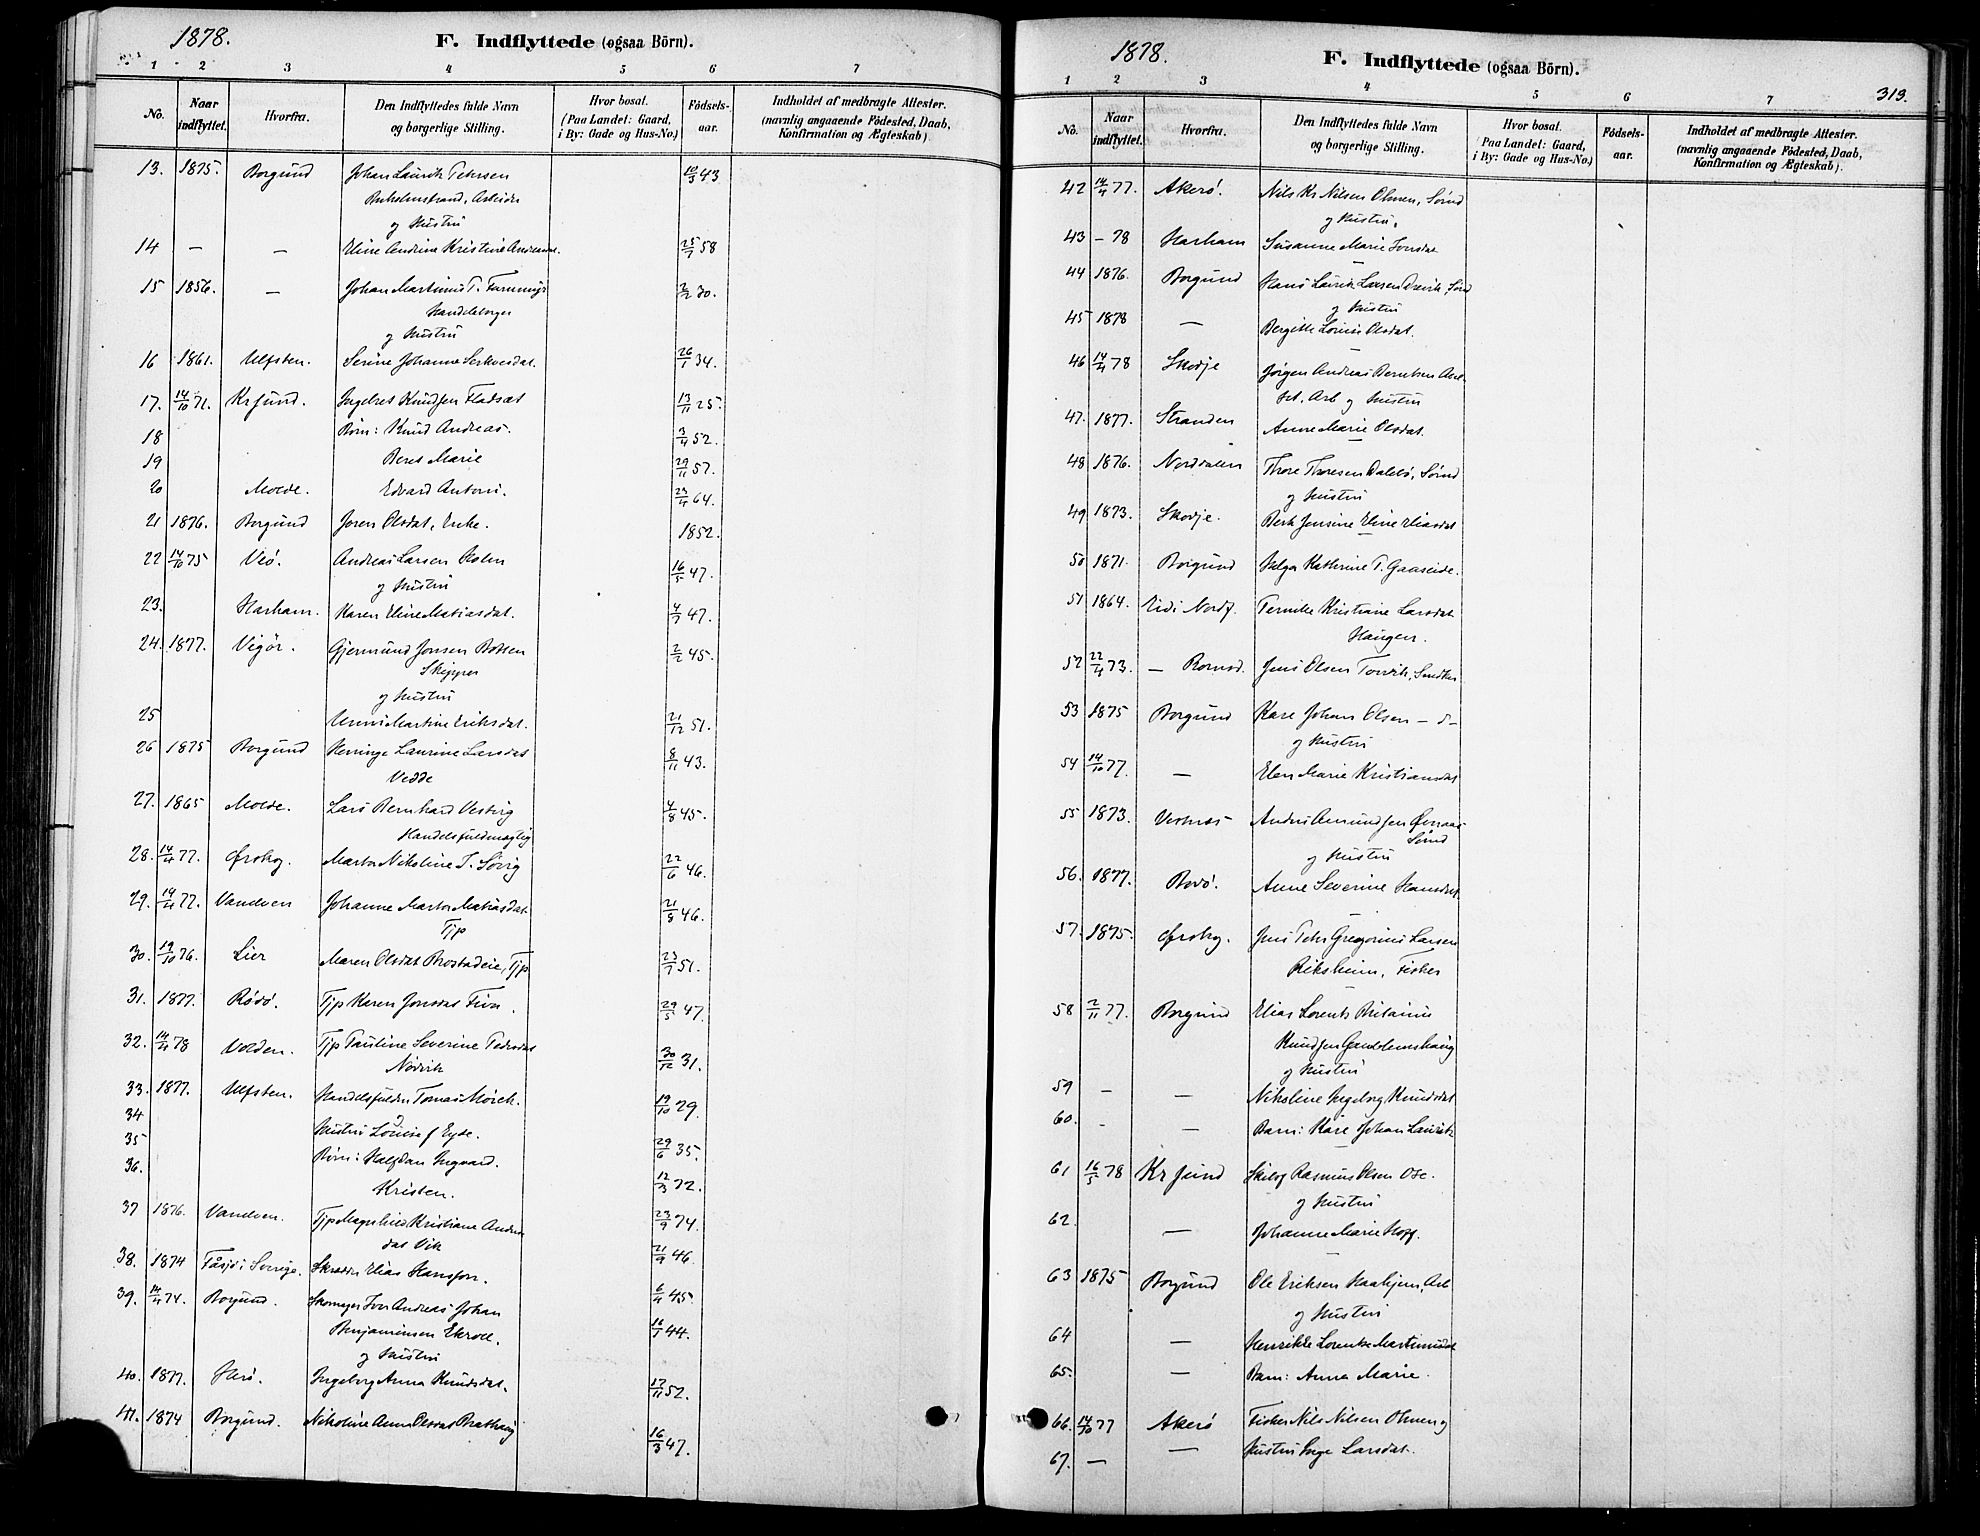 1878.
F. Indflyttede (ogsaa Börn).
1 2 3 4 5 6 7
No. Naar indflyttet. Hvorfra. Den Indflyttedes fulde Navn og borgerlige Stilling. Hvor bosat. (Paa Landet: Gaard, i By: Gade og Hus-No.) Födsels-aar. Indholdet af medbragte Attester. (navnlig angaaende Födested, Daab, Konfirmation og Ægteskab).
13. 1875. Borgund Johan Laurits 10/3 43
Arbeider
og Hustru
14 — — Eline Andrine Kristine 25/1 58
15 1856. — Johan Martinus T. 2/2 30.
Handelsborger
og Hustru
16 1861. Ulfsten. Serine Johanne 26/1 34.
17. 14/10 72. Krsund. Ingebret Knudsen Fladset 13/11 25.
18 Børn: Knud Andreas. 3/4 52.
19 Beret Marie 29/11 57.
20 Molde. Edvard Anton. 23/4 64.
21 1876. Borgund Joren Olsdat, Enke. 1852.
22 14/10 75 Veø. Andreas Larsen Holm 16/5 47.
og Hustru
23. Harham. Karen Eline Matiasdat. 4/7 47.
24. 1877. Vigør. Gjermund Jonsen 2/2 45.
Skipper
og Hustru
25 Martine Eriksdat. 21/12 51.
26 1875 Borgund Laurine Larsdat 8/11 43.
Vedde
27. 1865 Molde. Lars Bernhard Vestvig 4/8 45.
Handelsfuldmægtig
28. 14/4 77. Ørskog. Marta Nikoline T. Søvig 22/6 46.
29. 14/4 77. Vandven Johanne Marta Matiasdat. 21/8 46.
Tjp
30. 19/10 76. Lier Maren Olsdat, Tjp 23/7 51.
31. 1877. Rødø. Tjp Karen Jonsdat 29/5 47.
32. 14/4 78 Volden. Tjp Pauline Severine Pedersdat 30/12 31.
33. 1877. Ulfsten. Tomas Mørch. 19/10 29.
34 Hustru Louise f Eyde. 29/6 35.
35 Børn: Halfdan Ingvard. 12/3 72.
36. Kristen. 23/9 74.
37 1876. Vandven. Tjp Magnhild Kristiane
dat Vik 21/9 46.
38. 1874 Sverige. Skrædder Elias Hansson. 6/4 45.
39. 14/4 74. Borgund. Skomager Iver Andreas Johan 16/1 44.
Benjaminsen
og Hustru
40. 1877. Herø. Ingeborg Anna Knudsdat. 17/11 52.
41. 1874 Borgund. Nikoline Anne Olsdat 16/3 47.
1878.
F. Indflyttede (ogsaa Börn).
1 2 3 4 5 6 7
313.
No. Naar indflyttet. Hvorfra. Den Indflyttedes fulde Navn og borgerlige Stilling. Hvor bosat. (Paa Landet: Gaard, i By: Gade og Hus-No.) Födsels-aar. Indholdet af medbragte Attester. (navnlig angaaende Födested, Daab, Konfirmation og Ægteskab).
42 14/4 77. Akerø. Nils Kr Nilsen
og Hustru,
43 — 78 Harham Susanne Marie
44 1876. Borgund Hans Laurits Larsen
og Hustru
45 1878 — Bergitte Louise Olsdat.
46 14/4 78 Skodje Jørgen Andreas Berntsen
Arb og Hustru
47. 1877. Stranden Anne Marie Olsdat.
48 1876. Norddalen Thore Thoresen
og Hustru
49 1873. Skodje. Jensine Eline Eliasdat
50 1871. Borgund Helga Kathrine T. Gaaseide.
51 1864. Eid i Nordf. Pernille Kristiane Larsdat
Haugen.
52 22/4 73. — Romsd. Jens Olsen
53 1875 Borgund Kare Johan Olsen — d —
og Hustru
54 14/10 77. — Elen Marie Kristiansdat
55 1873. Vestnes Anders Amundsen
og Hustru
56. 1877. Bodø. Anne Severine Hansdat
57. 1875. Ørskog. Jens Peter Gregorius Larsen
Riksheim, Fisker
58 2/11 77. Borgund Elias Lorents
Knudsen
og Hustru
59 — — Nikoline Ingeborg Knudsdat
60. — — Barn: Kare Johan Laurits
61 16/5 78 Krsund Rasmus Olsen Ose.
og Hustru
62. — Johanne Marie Hoff.
63 1875 Borgund Ole Eriksen, Arb
og Hustru
64 — Henrikke Lorentse Martinusdat
65. — Barn: Anna Marie.
66. 14/10 77 Akerø Fisker Nils Nilsen og
67. — — Hustru Inge Larsdat.